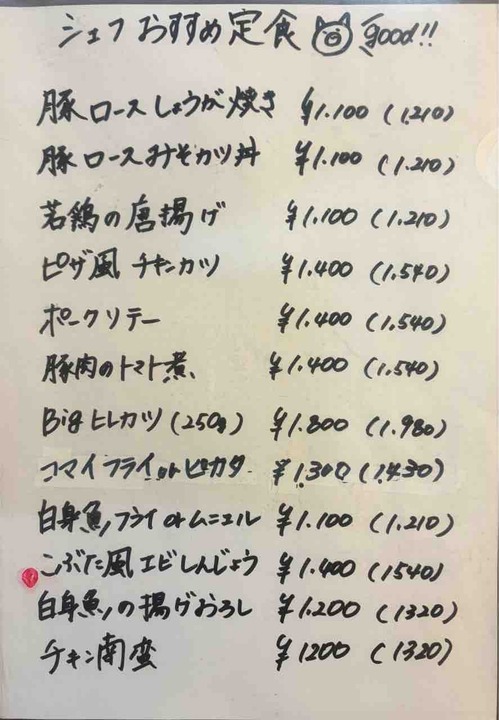 シェフおすすめ定食 good!!
豚ロースしょうが焼き ¥1.100 (1.210)
豚ロースみそカツ丼 ¥1.100 (1.210)
若鶏の唐揚げ ¥1.100 (1.210)
ピザ風チキンカツ ¥1.400 (1.540)
ポークソテー ¥1.400 (1.540)
豚肉のトマト煮 ¥1.400 (1.540)
Bigヒレカツ(250g) ¥1.800 (1.980)
コマイフライ or ピカタ ¥1.300 (1.430)
白身魚フライ or ムニエル ¥1.100 (1.210)
こぶた風エビしんじょう ¥1.400 (1540)
白身魚の揚げおろし ¥1.200 (1320)
チキン南蛮 ¥1200 (1320)